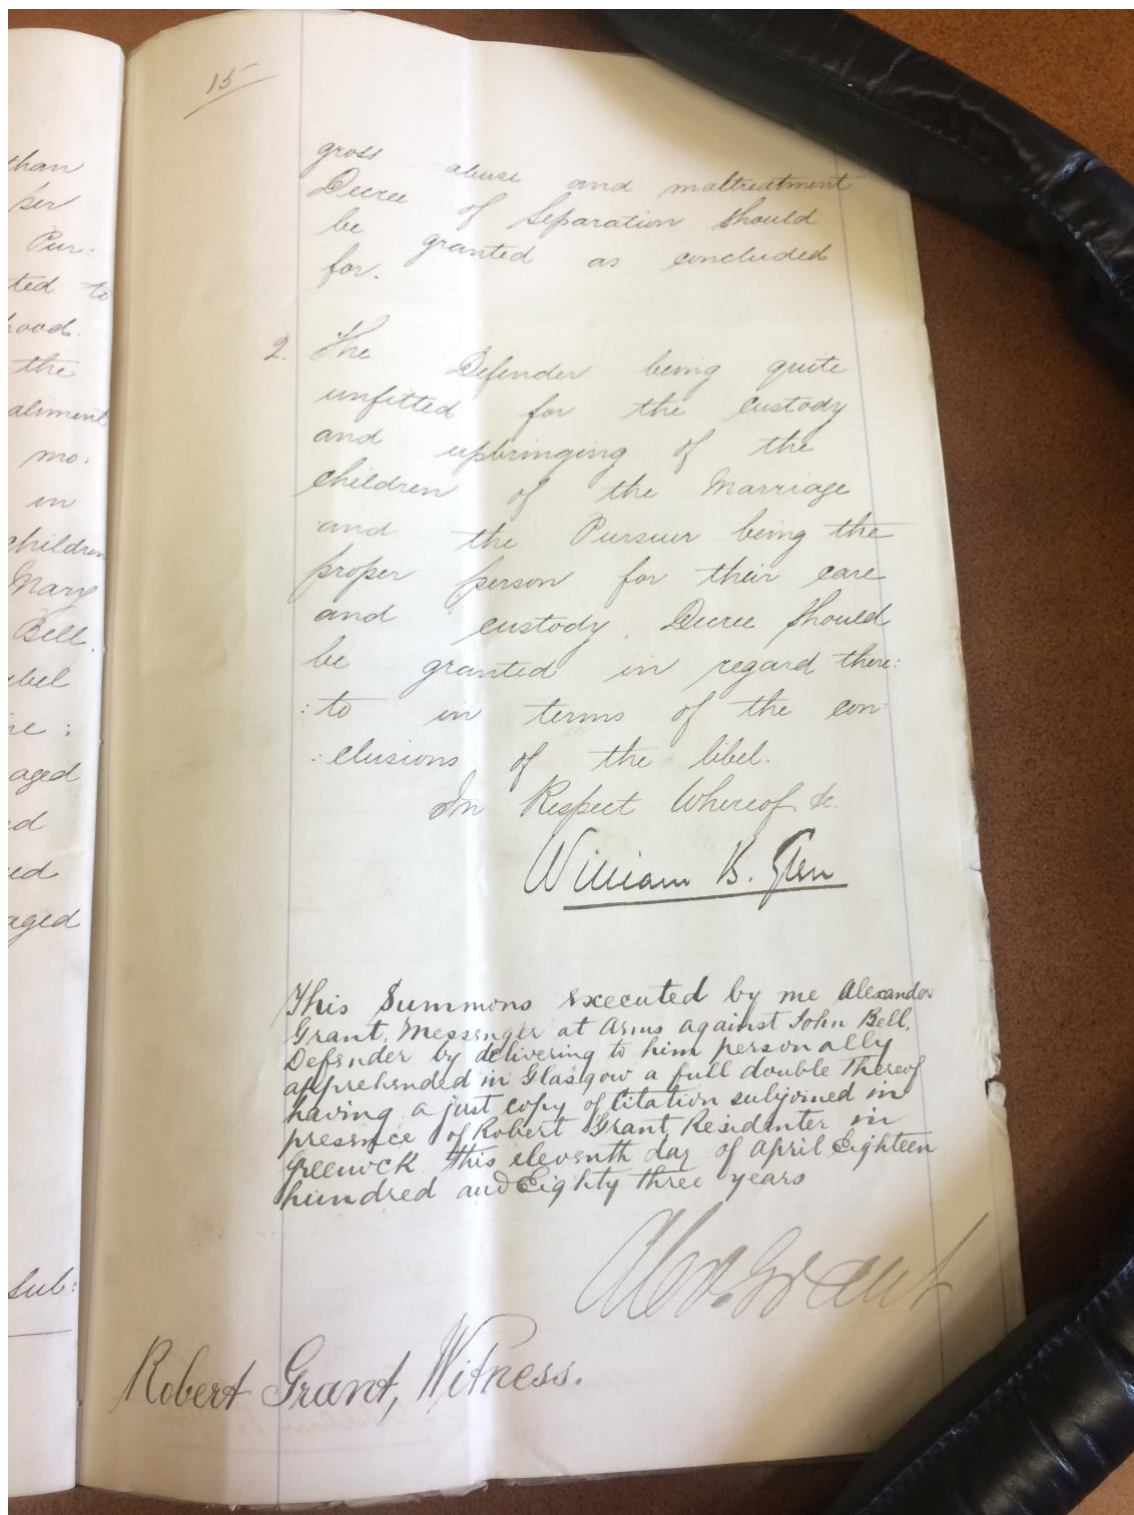 than
ser
Pur.
ted to
hood.
the
aliment
mo:
in
children
Mary
Bell.
bel
re :
aged
ed
ed
aged
Sub:
15
gross abuse and maltreatment
Decree of Separation should
be granted as concluded
for.
2. The Defender being quite
unfitted for the custody
and upbringing of the
children of the Marriage
and the Pursuer being the
proper person for their care
and custody, Decree should
be granted in regard there:
:to in terms of the con:
:clusions of the libel.
In Respect Whereof &c.
William B. Glen
This Summons executed by me Alexander
Grant, Messenger at Arms against John Bell,
Defender by delivering to him personally
apprehended in Glasgow a full double Thereof
having a just copy of Citation subjoined in
presence of Robert Grant Residenter in
Greenock this eleventh day of April Eighteen
hundred and Eighty three years
Alexr. Grant
Robert Grant, Witness.